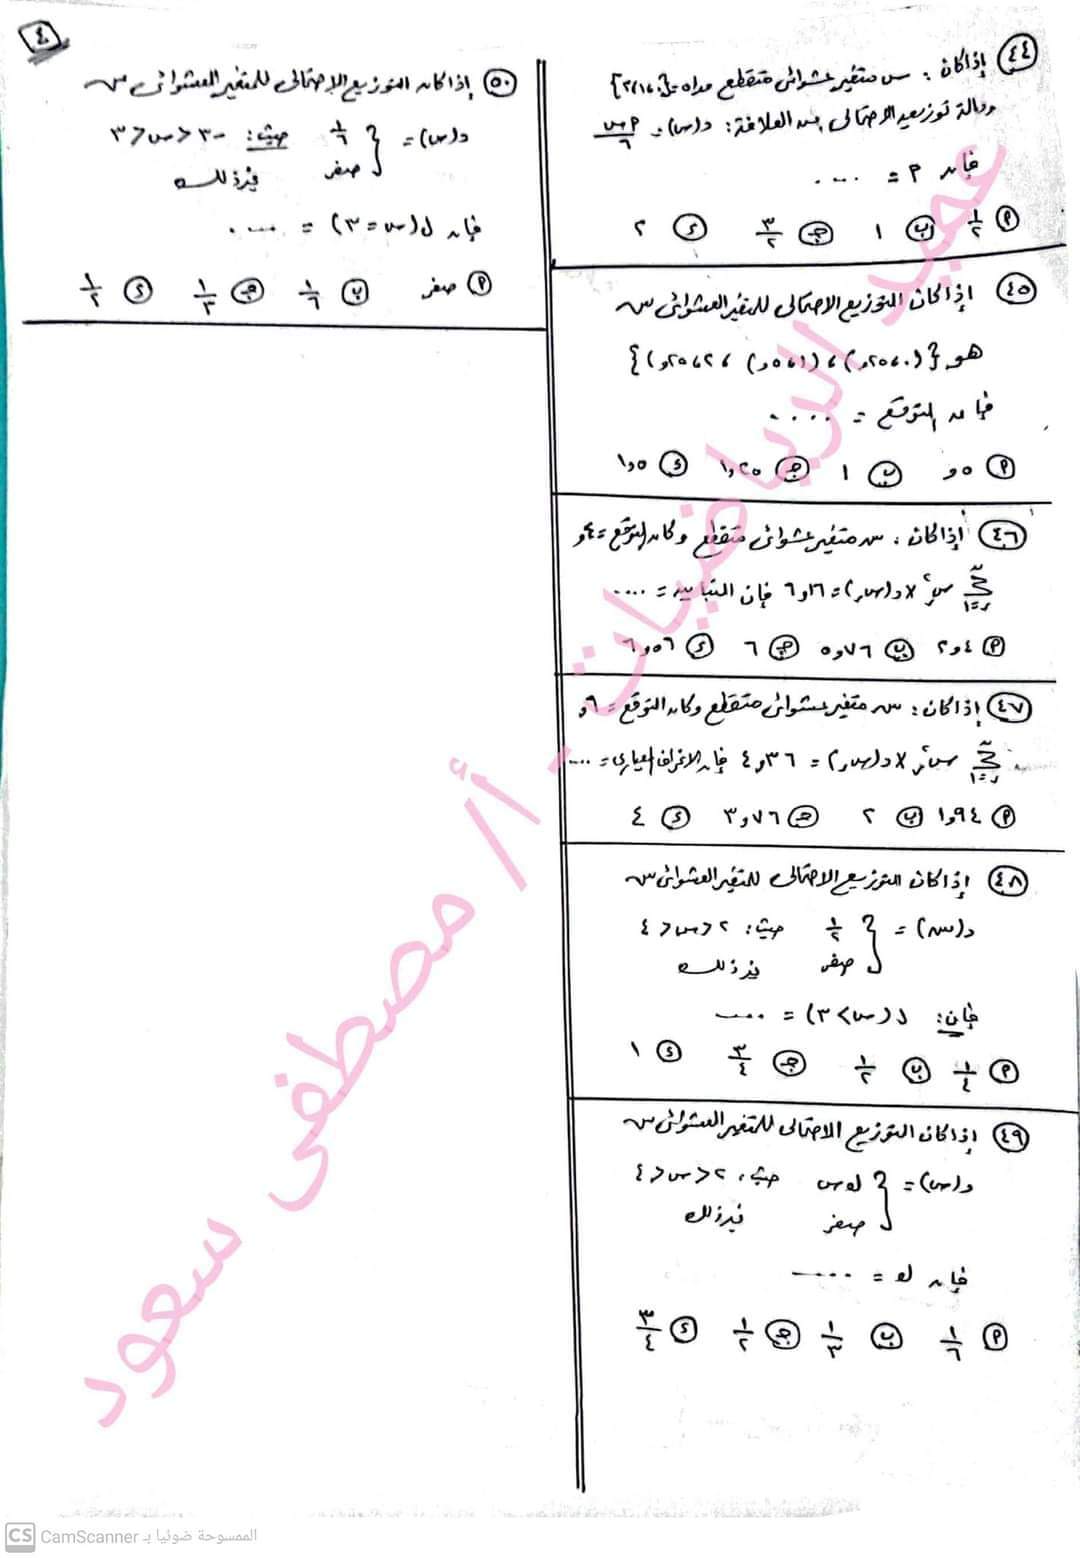 ٤
٤٤ إذا كان: س متغير عشوائى متقطع مداه = {٠، ١، ٢، ٣}
ودالة توزيعه الاحتمالى من العلاقة: د(س) = م س / ٦
فإن م = ....
م ١/٢ ب ١ جـ ٣/٢ د ٢
٤٥ إذا كان التوزيع الاحتمالى للمتغير العشوائى س
هو {(٠، ٢٥و)، (١، ٥و)، (٢، ٢٥و)}
فإن التوقع = ....
م ٥و ب ١ جـ ٢٥و١ د ٥و١
٤٦ إذا كان: س متغير عشوائى متقطع وكان التوقع = ٤و
∑ ر=١ س٢ر × د(سر) = ١٦و٦ فإن التباين = ....
م ٤و٢ ب ٧٦و٥ جـ ٦ د ٥٦و٦
٤٧ إذا كان: س متغير عشوائى متقطع وكان التوقع = ٦و
∑ ر=١ س٢ر × د(سر) = ٣٦و٤ فإن الانحراف المعيارى = ....
م ٩٤و١ ب ٢ جـ ٧٦و٣ د ٤
٤٨ إذا كان التوزيع الاحتمالى للمتغير العشوائى س
د(س) = { ١/٢ حيث: ٢ < س < ٤
صفر غير ذلك
فإن: ل(س > ٣) = ....
م ١/٤ ب ١/٢ جـ ٣/٤ د ١
٤٩ إذا كان التوزيع الاحتمالى للمتغير العشوائى س
د(س) = { ك س حيث: ٢ < س < ٤
صفر غير ذلك
فإن ك = ....
م ١/٦ ب ١/٣ جـ ١/٢ د ٣/٤
٥٠ إذا كان التوزيع الاحتمالى للمتغير العشوائى س
د(س) = { ١/٦ حيث: -٣ < س < ٣
صفر غير ذلك
فإن ل(س = ٣) = ....
م صفر ب ١/٦ جـ ١/٣ د ١/٢
عميد الرياضيات - أ/ مصطفى سعود
CS CamScanner الممسوحة ضوئيا بـ